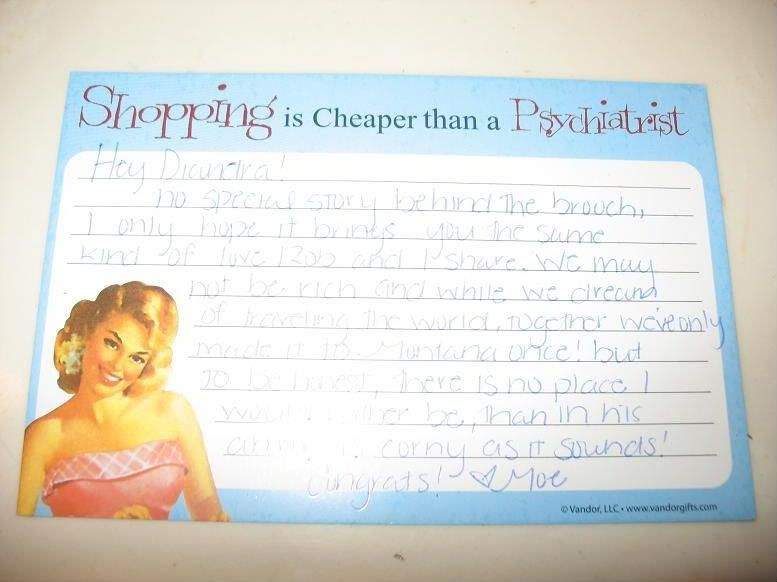 Shopping is Cheaper than a Psychiatrist
Hey Diandra!
no special story behind the brooch,
I only hope it brings you the same
kind of love Rob and I share. We may
not be rich and while we dream
of traveling the world, together we've only
made it to Montana once! but
to be honest, there is no place I
would rather be, than in his
corny as it sounds!
congrats! Moe
© Vandor, LLC • www.vandorgifts.com